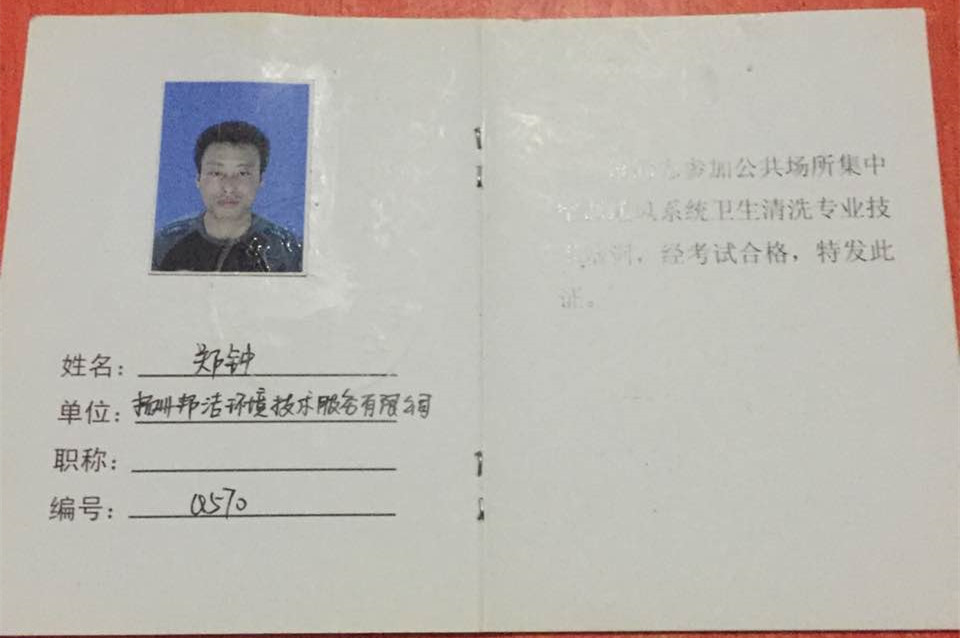 姓名：郑钟
单位：扬州邦洁环境技术服务有限公司
职称：
编号：0570
参加公共场所集中
风系统卫生清洗专业技
训，经考试合格，特发此
证。